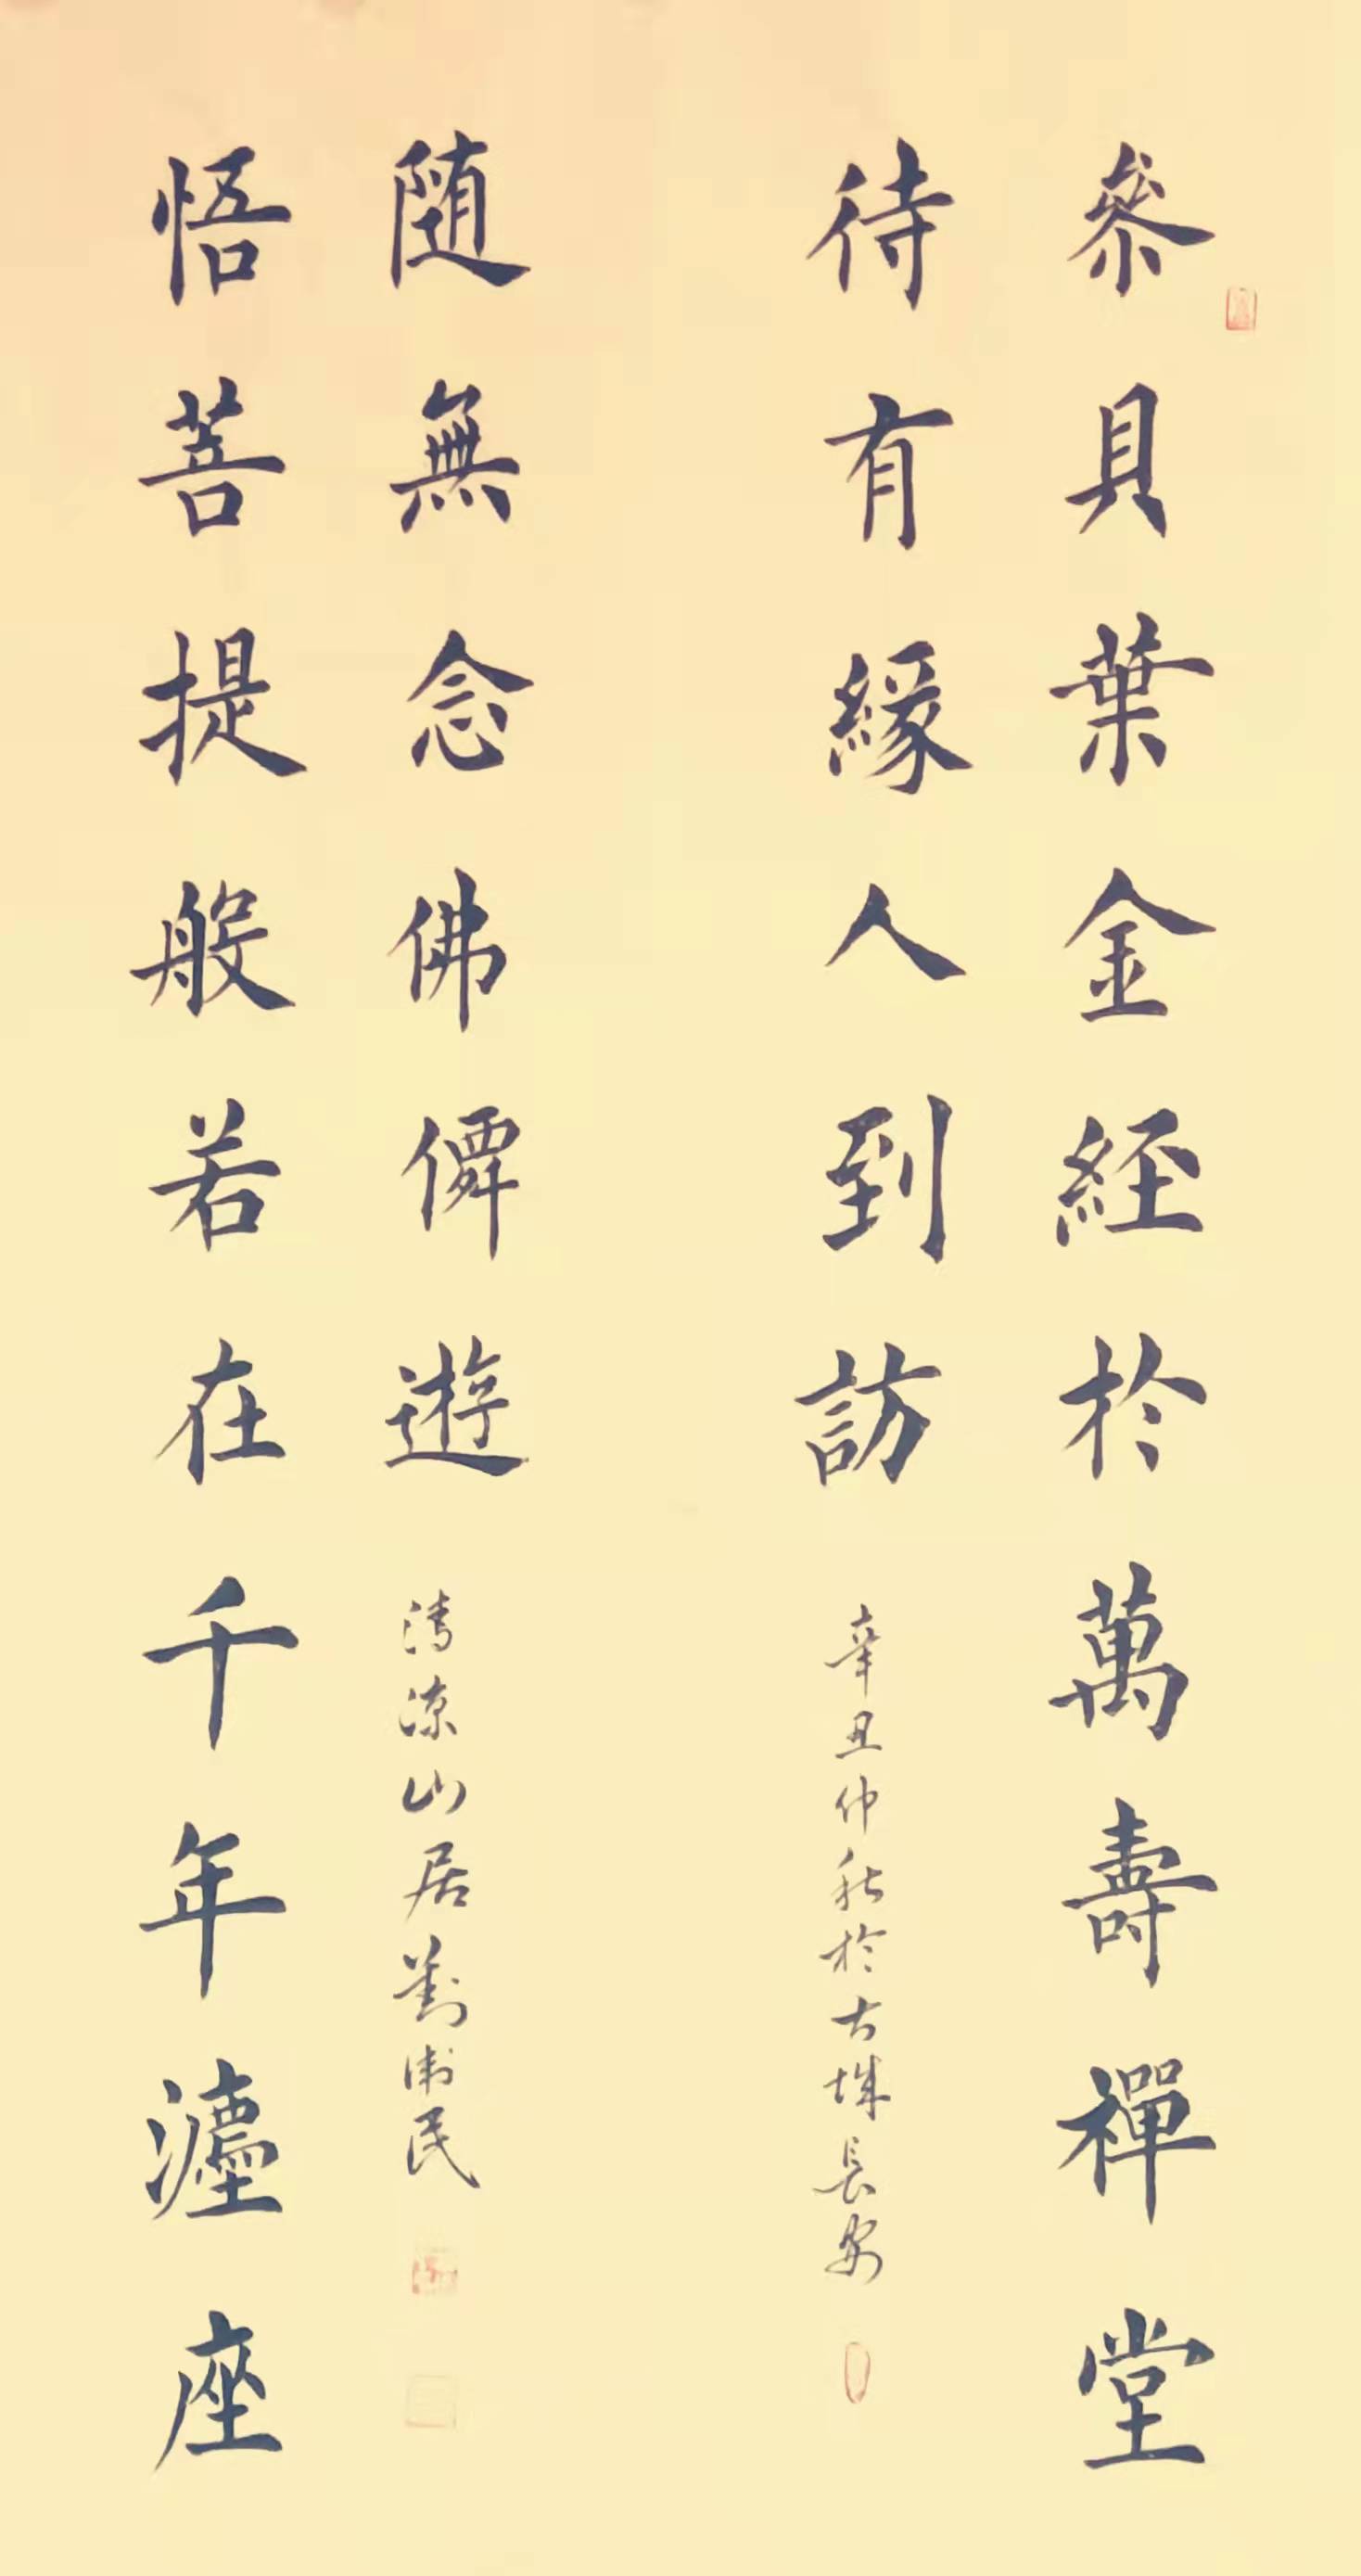 叅貝葉金經於萬壽禪堂
待有緣人到訪
辛丑仲秋於古城長安
悟菩提般若在千年瀍座
随無念佛僊遊
清凉山居劉衛民